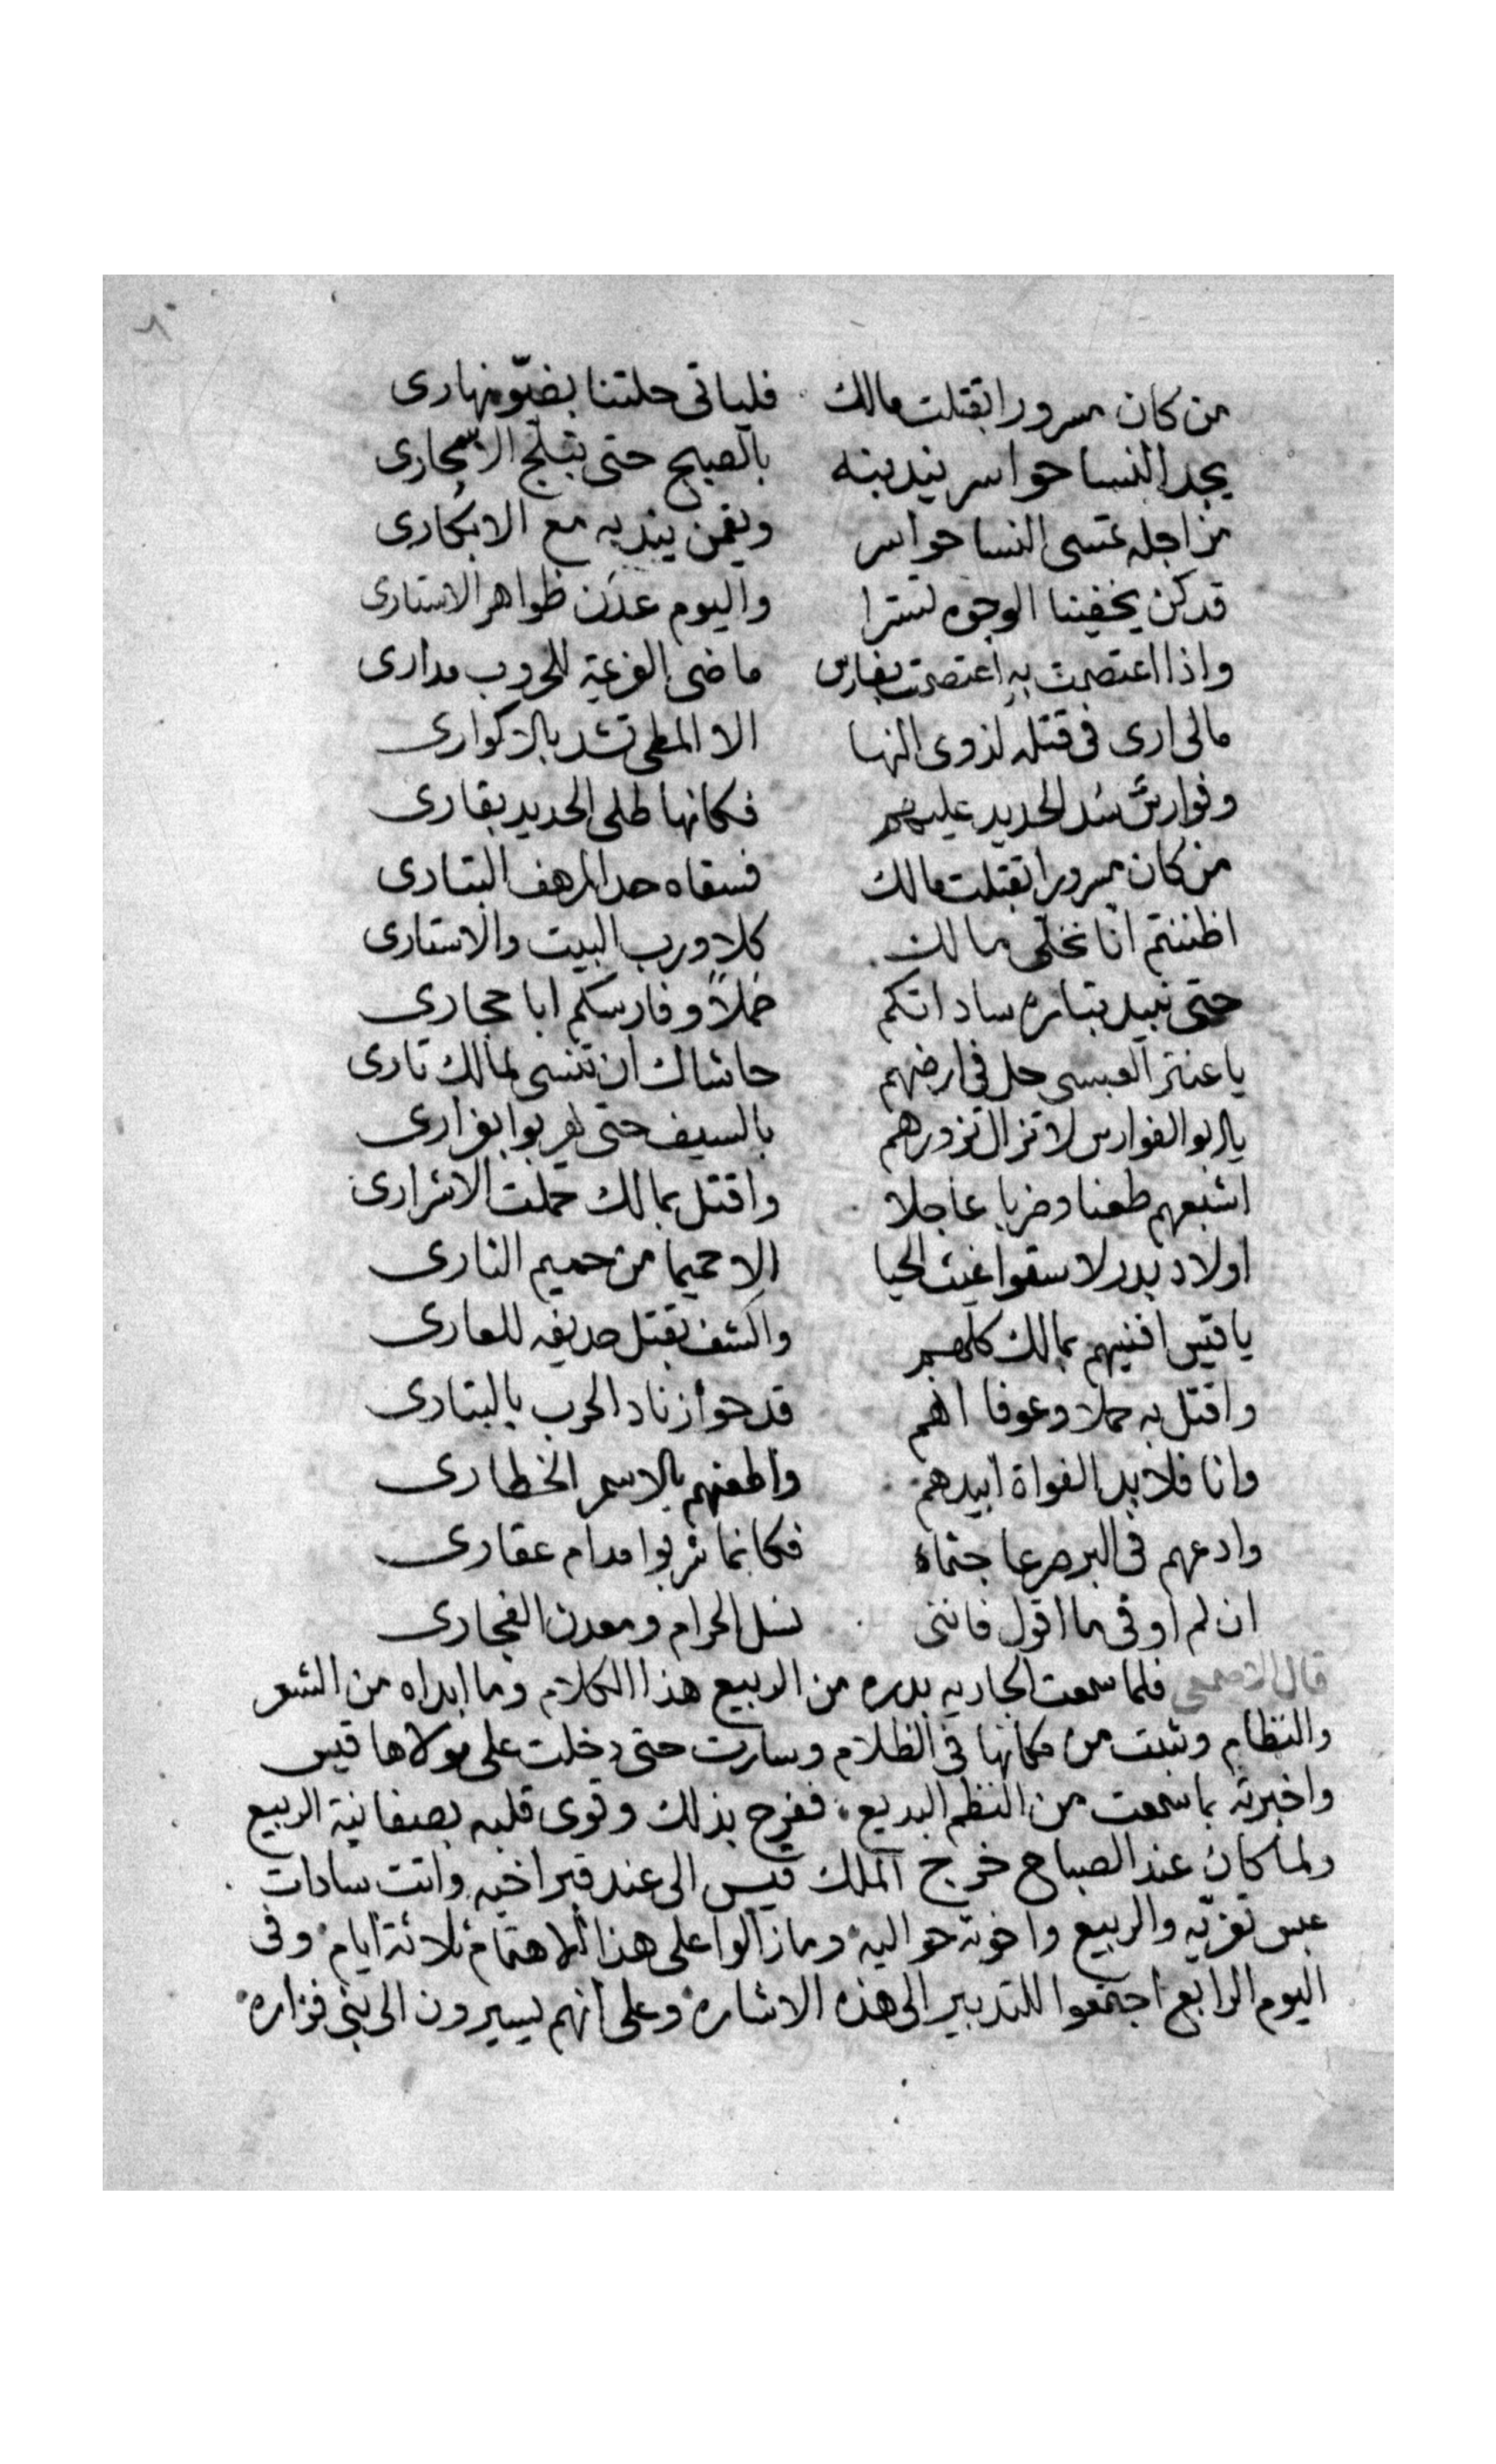 ٨
من كان مسرورا بقتلت مالك فلياتى حلتنا بضوّ نهارى
يجد النسا حواسر يندبنه بالصبح حتى تبلج الاسحارى
من اجله تمسى النسا حواسر ويقمن يندبه مع الابكارى
قد كن يخفينا الوجوه تسترا واليوم عدن ظواهر الاستارى
واذا اعتصمت به اعتصمت بفارس ماضى العزيمة للحروب مدارى
مالى ارى فى قتله لذوى النها الا المطى تشد بالاكوارى
وفوارسٌ شد الحديد عليهم فكانها طلى الحديد بقارى
من كان مسرورا بقتلت مالك فسقاه حد المرهف البتارى
اظننتم انا نخلى مالك كلا ورب البيت والاستارى
حتى نبيد بتاره ساداتكم حملاً وفارسكم ابا حجارى
يا عنتر العبسى حل فى ارضهم حاشاك ان تنسى لمالك تارى
يا ابو الفوارس لا تزال تزورهم بالسيف حتى يهربوا بفرارى
اشبعهم طعنا وضربا عاجلا واقتل بمالك حملت الاشرارى
اولاد بدر لا سقوا غيث الحيا الا حميما من حميم النارى
يا قيس افنيهم بمالك كلهم واكشف بقتل حديفه للعارى
واقتل به حملا وعوفا انهم قدحوا زناد الحرب بالبتارى
وانا فلا بد الغواة ابيدهم واطعنهم بالاسمر الخطارى
وادعهم فى البر صرعا جثماة فكانما شربوا مدام عقارى
ان لم اوفى ما اقول فاننى نسل الحرام ومعدن الفجارى
قال الاصمعى فلما سمعت الجاريه بدره من الربيع هذا الكلام وما ابداه من الشعر
والنظام وثبت من مكانها فى الظلام وسارت حتى دخلت على مولاها قيس
واخبرته بما سمعت من النظم البديع، ففرح بذلك وقوى قلبه بصفا نية الربيع
ولما كان عند الصباح خرج الملك قيس الى عند قبر اخيه واتت سادات
عبس تعزيه والربيع واخوته حواليه وما زالوا على هذا الاهتمام ثلاثة ايام وفى
اليوم الرابع اجتمعوا للتدبير الى هذه الاشاره وعلى انهم يسيرون الى بنى فزاره